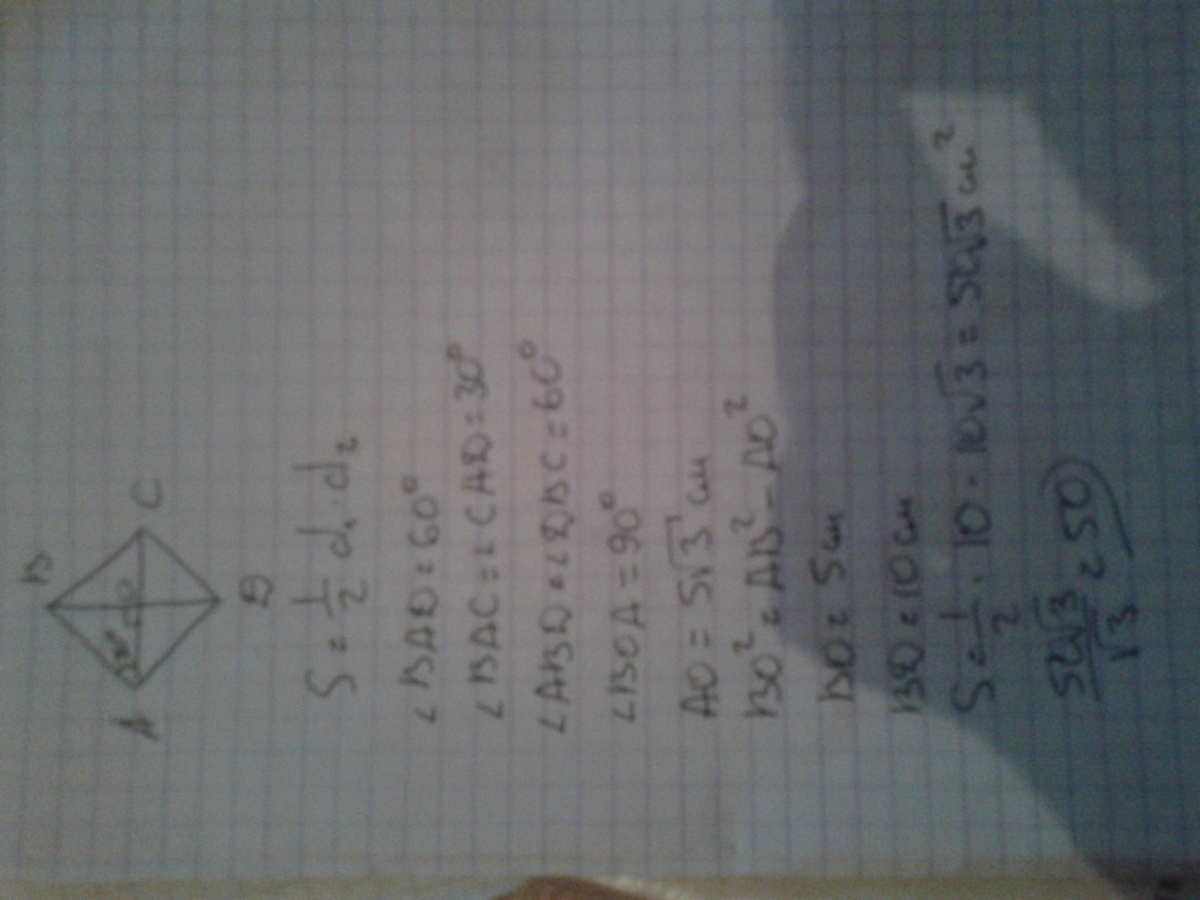 B
A C
O
D
S = 1/2 d₁ · d₂
∠BAD = 60°
∠BAC = ∠CAD = 30°
∠ABD = ∠DBC = 60°
∠BOA = 90°
AO = 5√3 см
BO² = AB² - AO²
BO = 5 см
BD = 10 см
S = 1/2 · 10 · 10√3 = 50√3 см²
50√3/√3 = 50